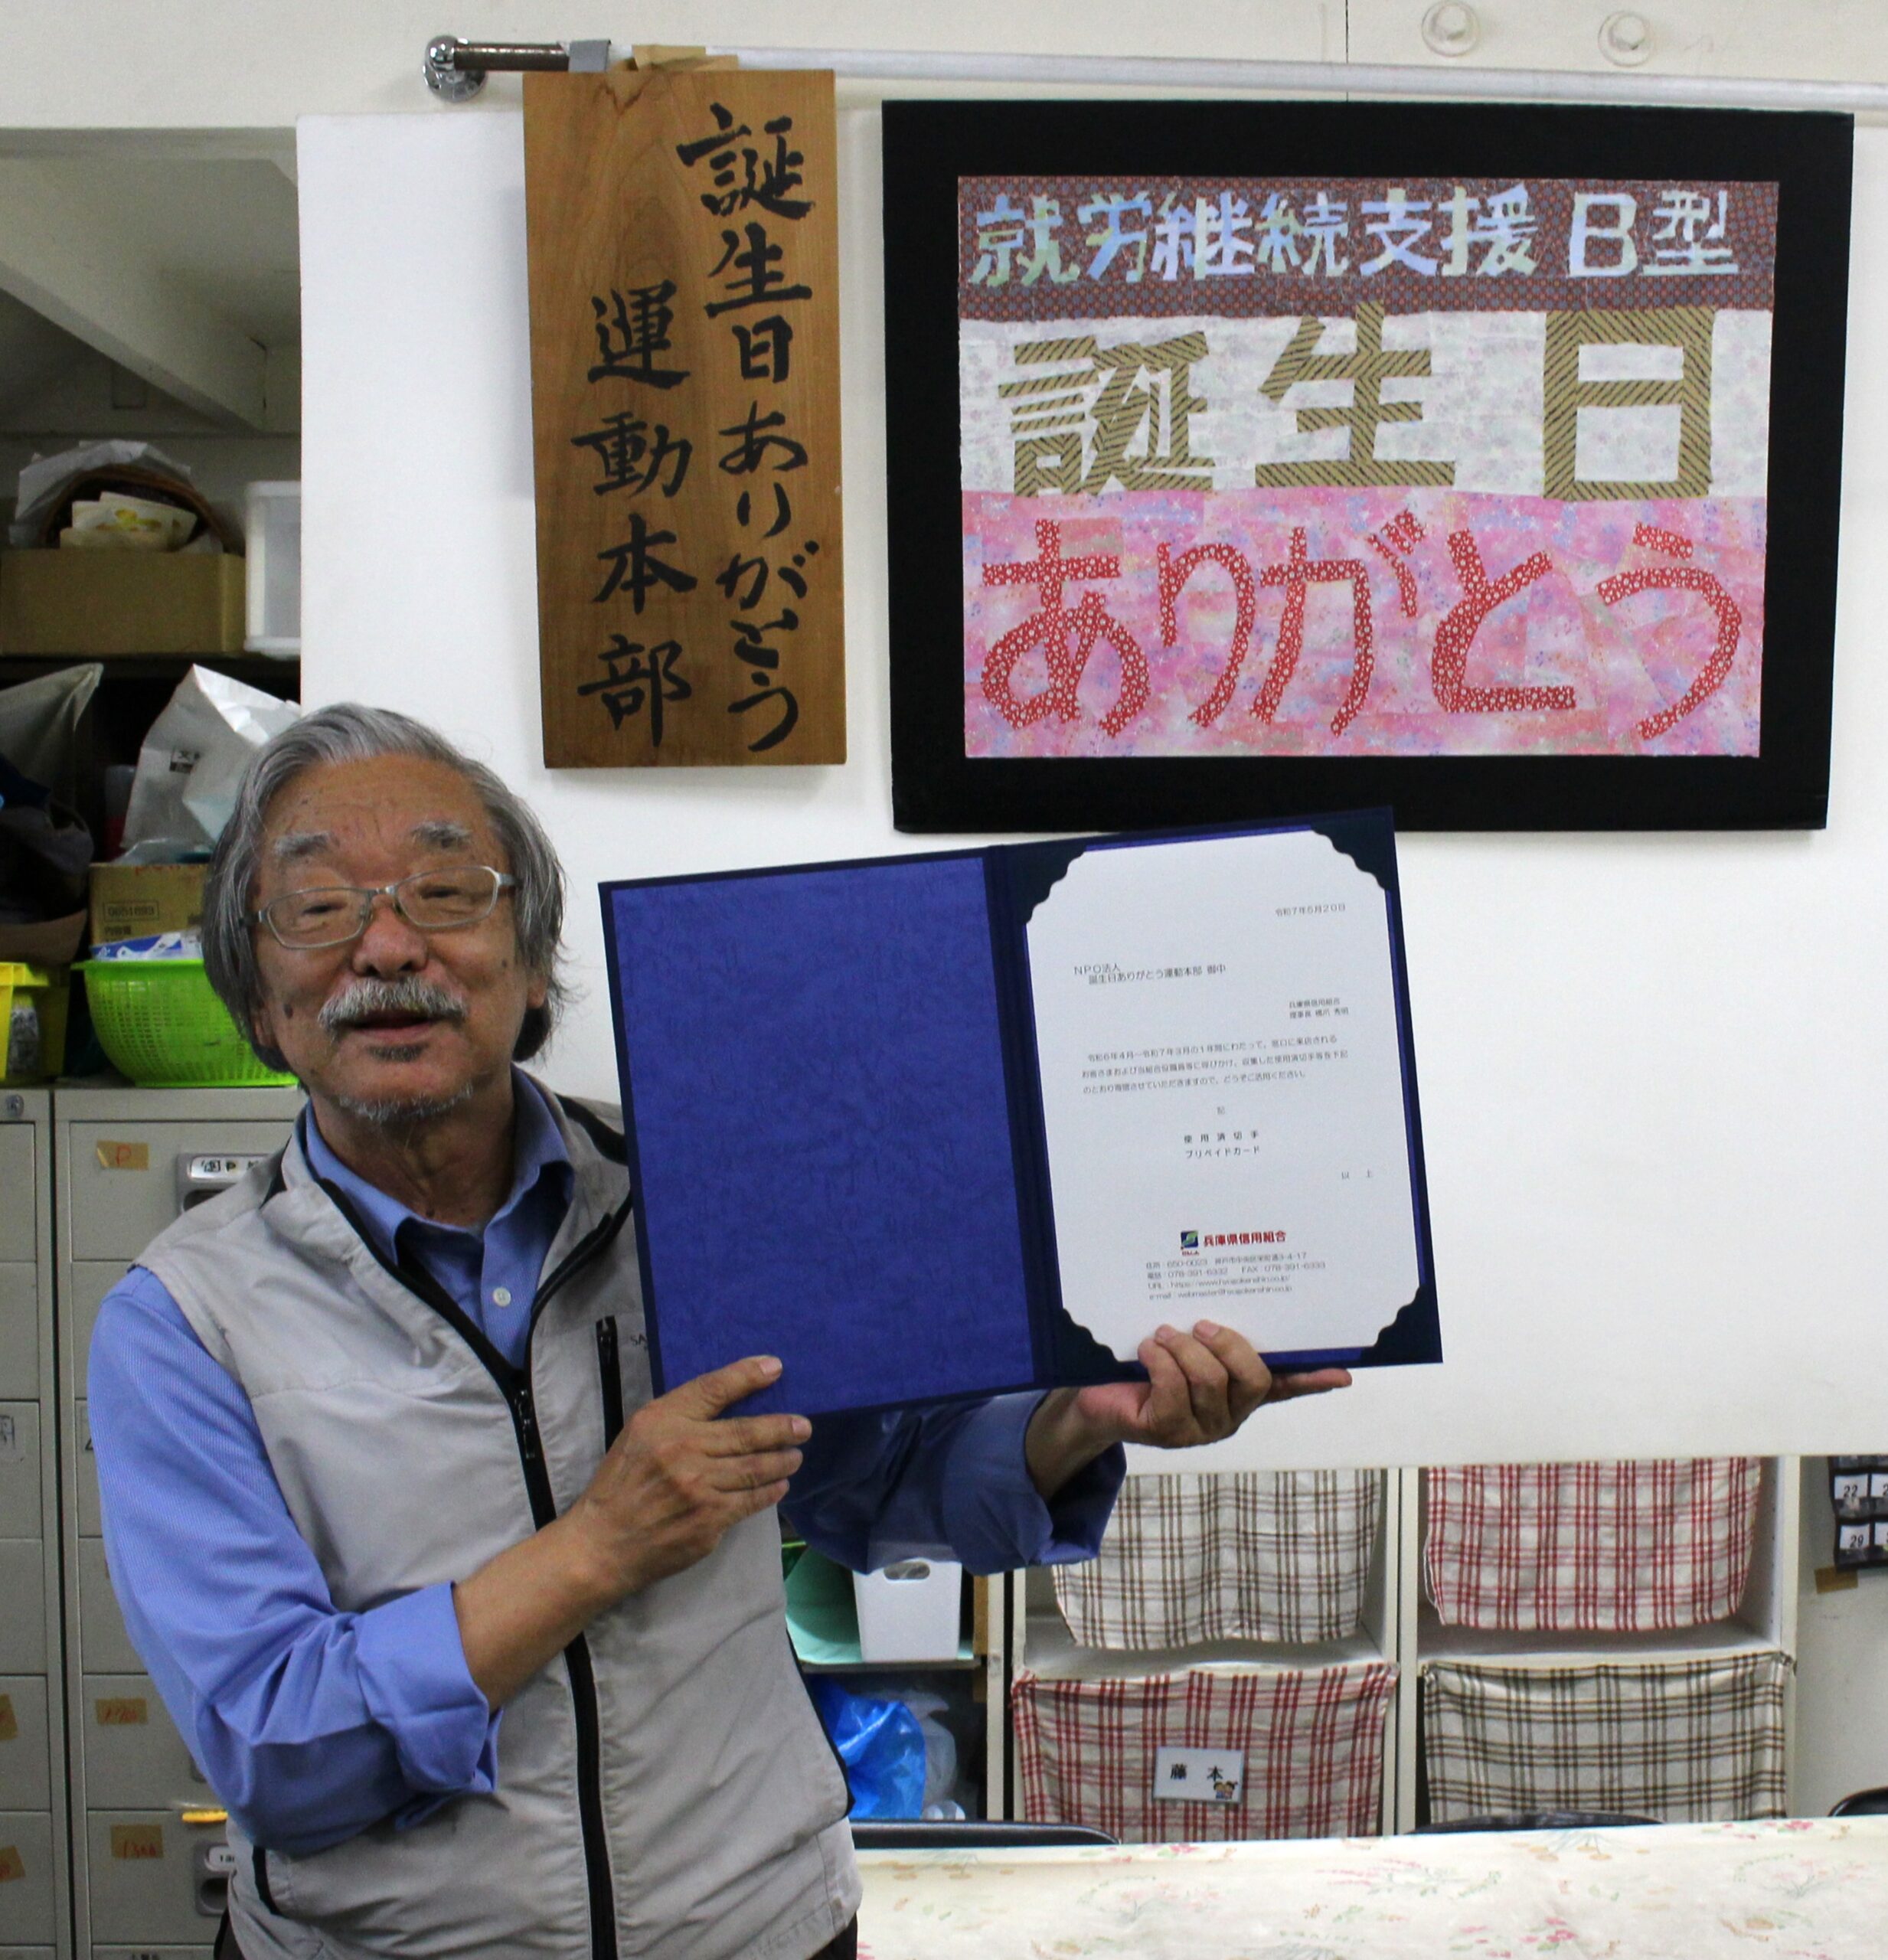 誕生日ありがとう
運動本部
就労継続支援B型
誕生日
ありがとう
令和7年5月20日
NPO法人
誕生日ありがとう運動本部 御中
兵庫県信用組合
理事長 橋爪 秀明
令和6年4月〜令和7年3月の1年間にわたって、窓口に来店される
お客さまおよび当組合役職員等に呼びかけ、収集した使用済切手等を下記
のとおり寄贈させていただきますので、どうぞご活用ください。
記
使用済切手
プリペイドカード
以 上
兵庫県信用組合
住所:650-0023 神戸市中央区栄町通3-4-17
電話:078-391-6332 FAX:078-391-6333
藤本
22
29